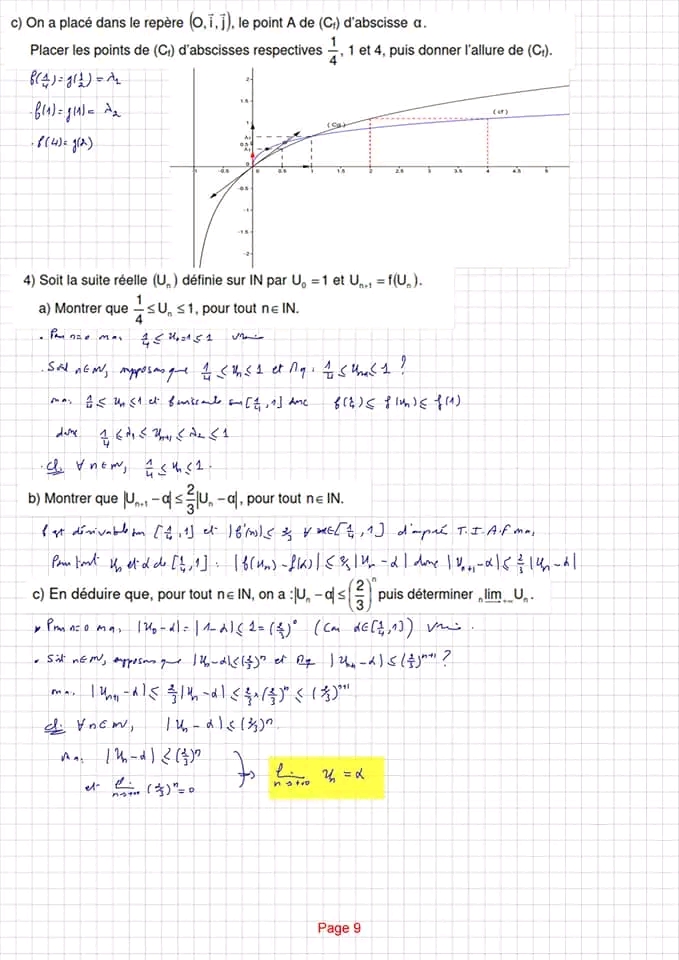 c) On a placé dans le repère (O, i⃗, j⃗), le point A de (Cf) d'abscisse α.
Placer les points de (Cf) d'abscisses respectives 1/4, 1 et 4, puis donner l'allure de (Cf).
f(1/4) = g(1/2) = λ1
. f(1) = g(1) = λ2
. f(4) = g(2)
2
1.5
1
0.5
0
-0.5
-1
-1.5
-2
λ2
λ1
(Cg)
(cf)
-1 -0.5 0 0.5 1 1.5 2 2.5 3 3.5 4 4.5 5
4) Soit la suite réelle (Un) définie sur IN par U0 = 1 et Un+1 = f(Un).
a) Montrer que 1/4 ≤ Un ≤ 1, pour tout n ∈ IN.
. Pour n=0 on a, 1/4 ≤ U0=1 ≤ 1 vrai
. Soit n∈IN, supposons que 1/4 ≤ Un ≤ 1 et Mq. 1/4 ≤ Un+1 ≤ 1 ?
on a, 1/4 ≤ Un ≤ 1 et f croissante sur [1/4, 1] donc f(1/4) ≤ f(Un) ≤ f(1)
donc 1/4 ≤ λ1 ≤ Un+1 ≤ λ2 ≤ 1
. cl: ∀ n∈IN, 1/4 ≤ Un ≤ 1.
b) Montrer que |Un+1 − α| ≤ 2/3 |Un − α|, pour tout n ∈ IN.
f est dérivable sur [1/4, 1] et |f'(x)| ≤ 2/3 ∀ x∈[1/4, 1] d'après T.I.A.F on a,
Pour tout Un et α de [1/4, 1] : |f(Un) − f(α)| ≤ 2/3 |Un − α| donc |Un+1 − α| ≤ 2/3 |Un − α|
c) En déduire que, pour tout n ∈ IN, on a : |Un − α| ≤ (2/3)^n puis déterminer lim n→+∞ Un.
. Pour n=0 on a, |U0 − α| = |1 − α| ≤ 1 = (2/3)^0 (car α∈[1/4, 1]) vrai.
. Soit n∈IN, supposons que |Un − α| ≤ (2/3)^n et Mq |Un+1 − α| ≤ (2/3)^n+1 ?
on a, |Un+1 − α| ≤ 2/3 |Un − α| ≤ 2/3 × (2/3)^n ≤ (2/3)^n+1
cl: ∀ n∈IN, |Un − α| ≤ (2/3)^n.
on a, |Un − α| ≤ (2/3)^n
et lim n→+∞ (2/3)^n = 0
lim n→+∞ Un = α
Page 9